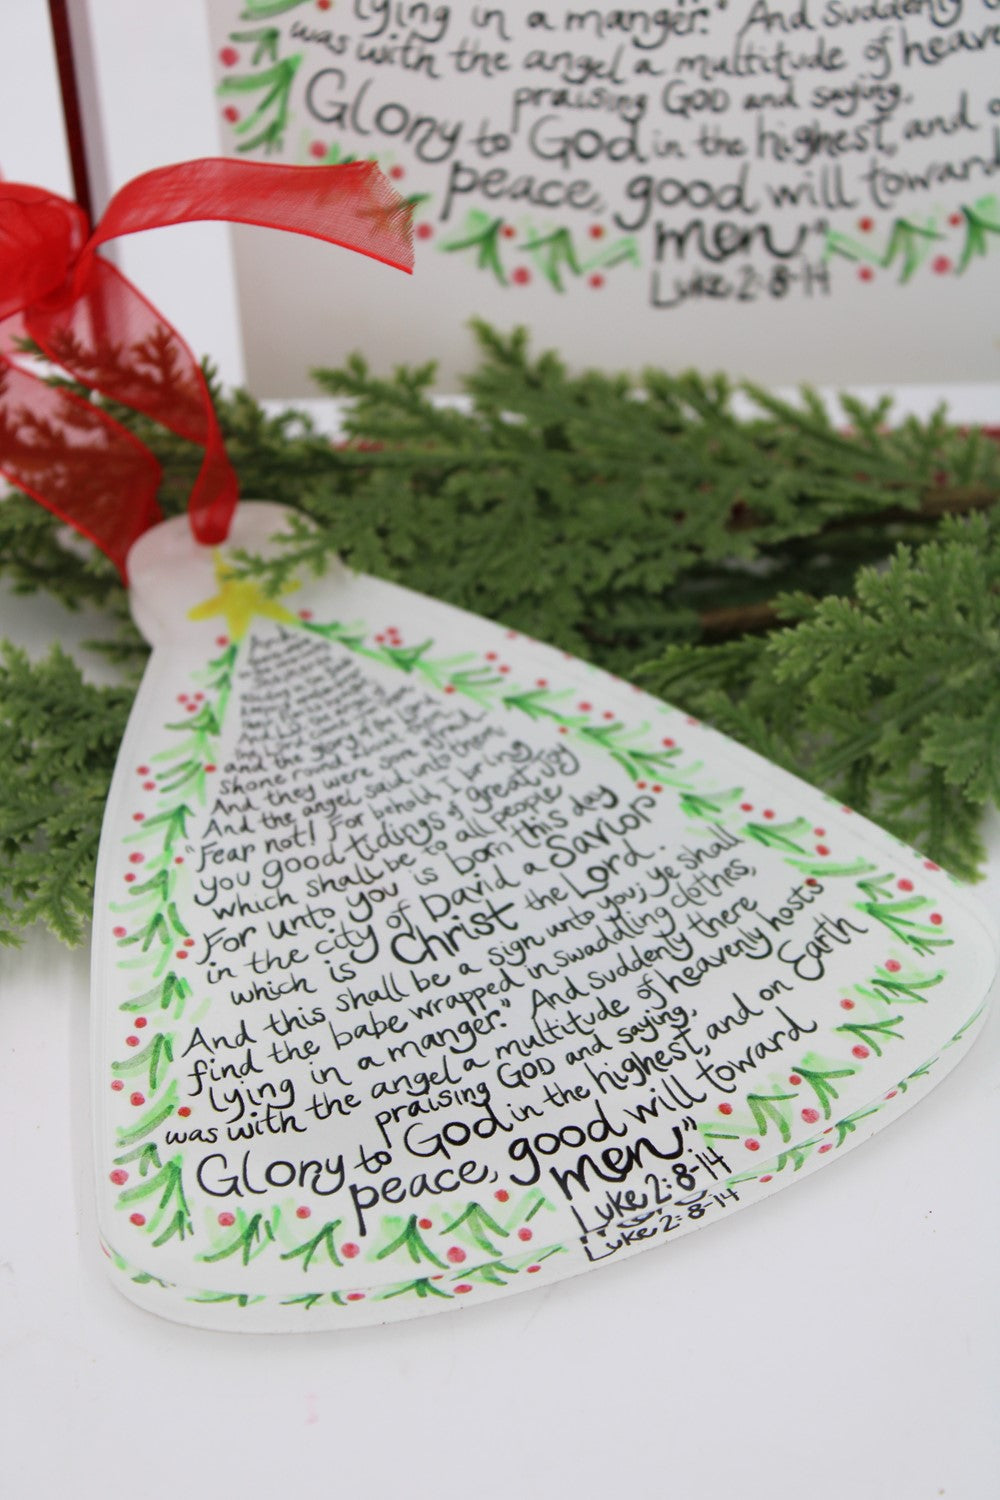 lying in a manger." And suddenly
was with the angel a multitude of
praising GOD and saying,
Glory to God in the highest, and
peace, good will toward
men"
Luke 2:8-14
And
and the glory of the
shone round about them
And they were sore afraid
And the angel said unto them,
"Fear not! For behold, I bring
you good tidings of great joy
which shall be to all people
For unto you is born this day
in the city of David a Savior
which is Christ the Lord.
And this shall be a sign unto you; ye shall
find the babe wrapped in swaddling clothes,
lying in a manger." And suddenly there
was with the angel a multitude of heavenly hosts
praising GOD and saying,
Glory to God in the highest, and on Earth
peace, good will toward
men"
Luke 2:8-14
Luke 2:8-14